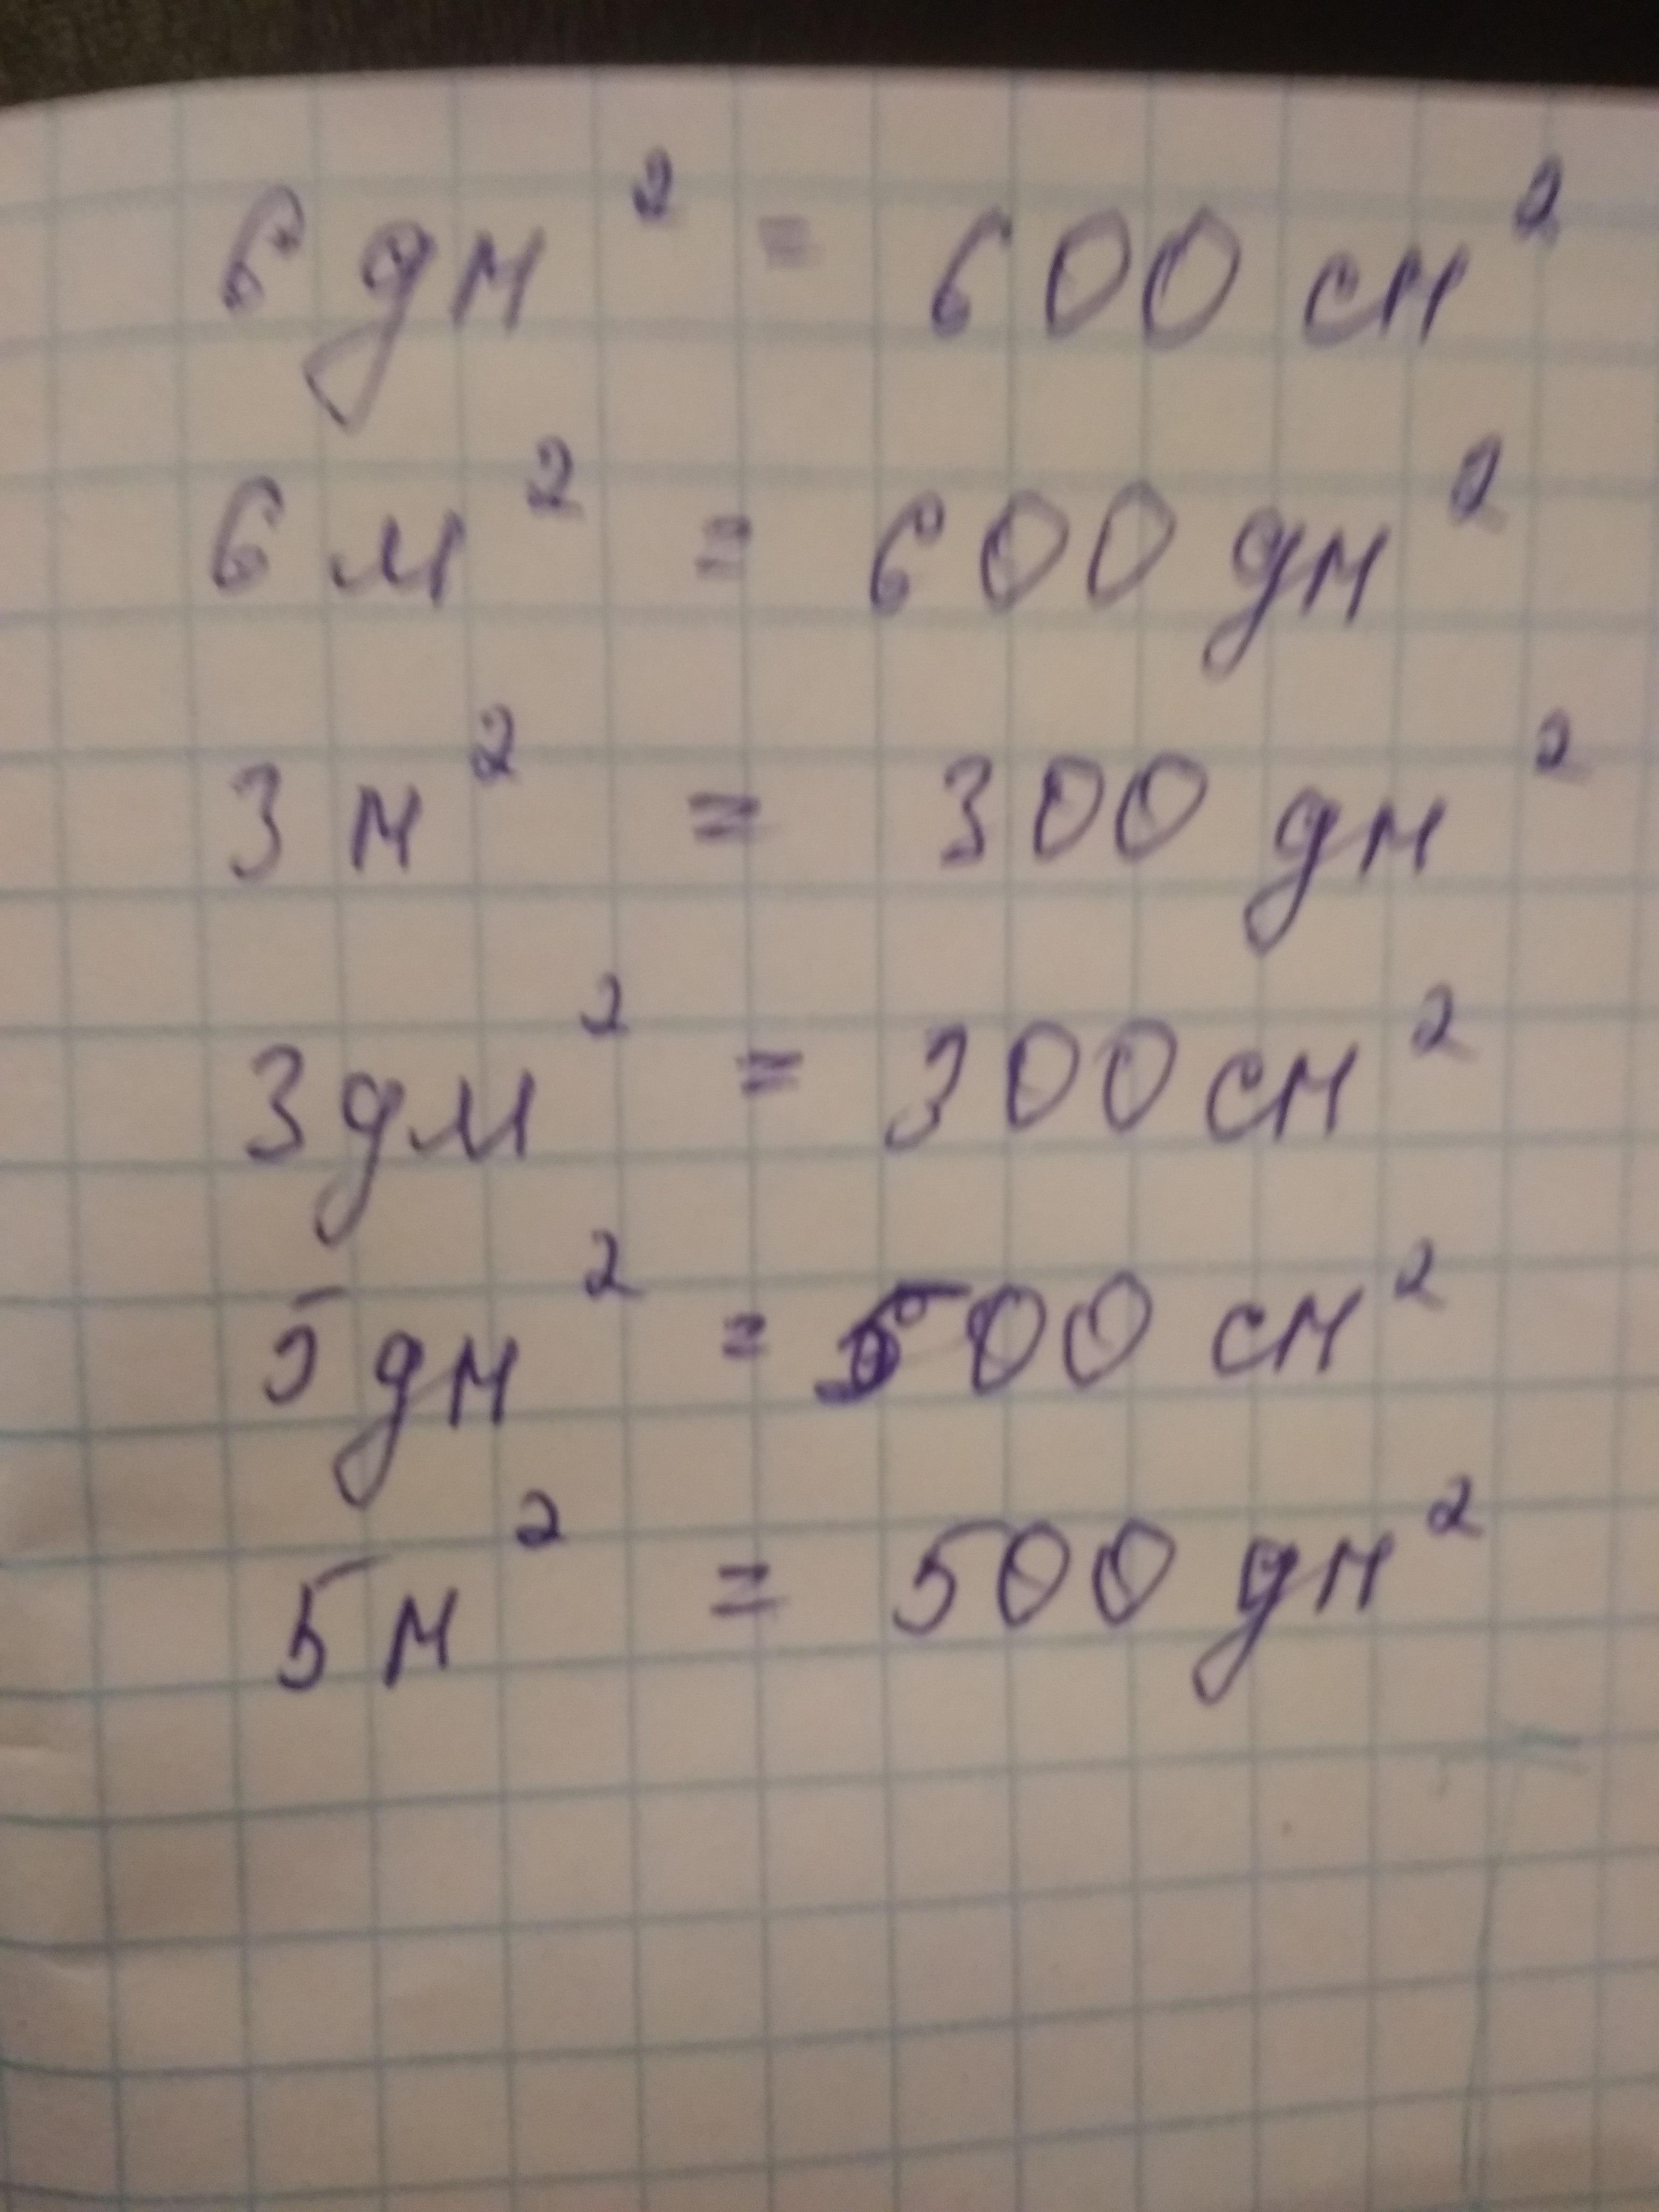 6 дм² = 600 см²
6 м² = 600 дм²
3 м² = 300 дм²
3 дм² = 300 см²
5 дм² = 500 см²
5 м² = 500 дм²